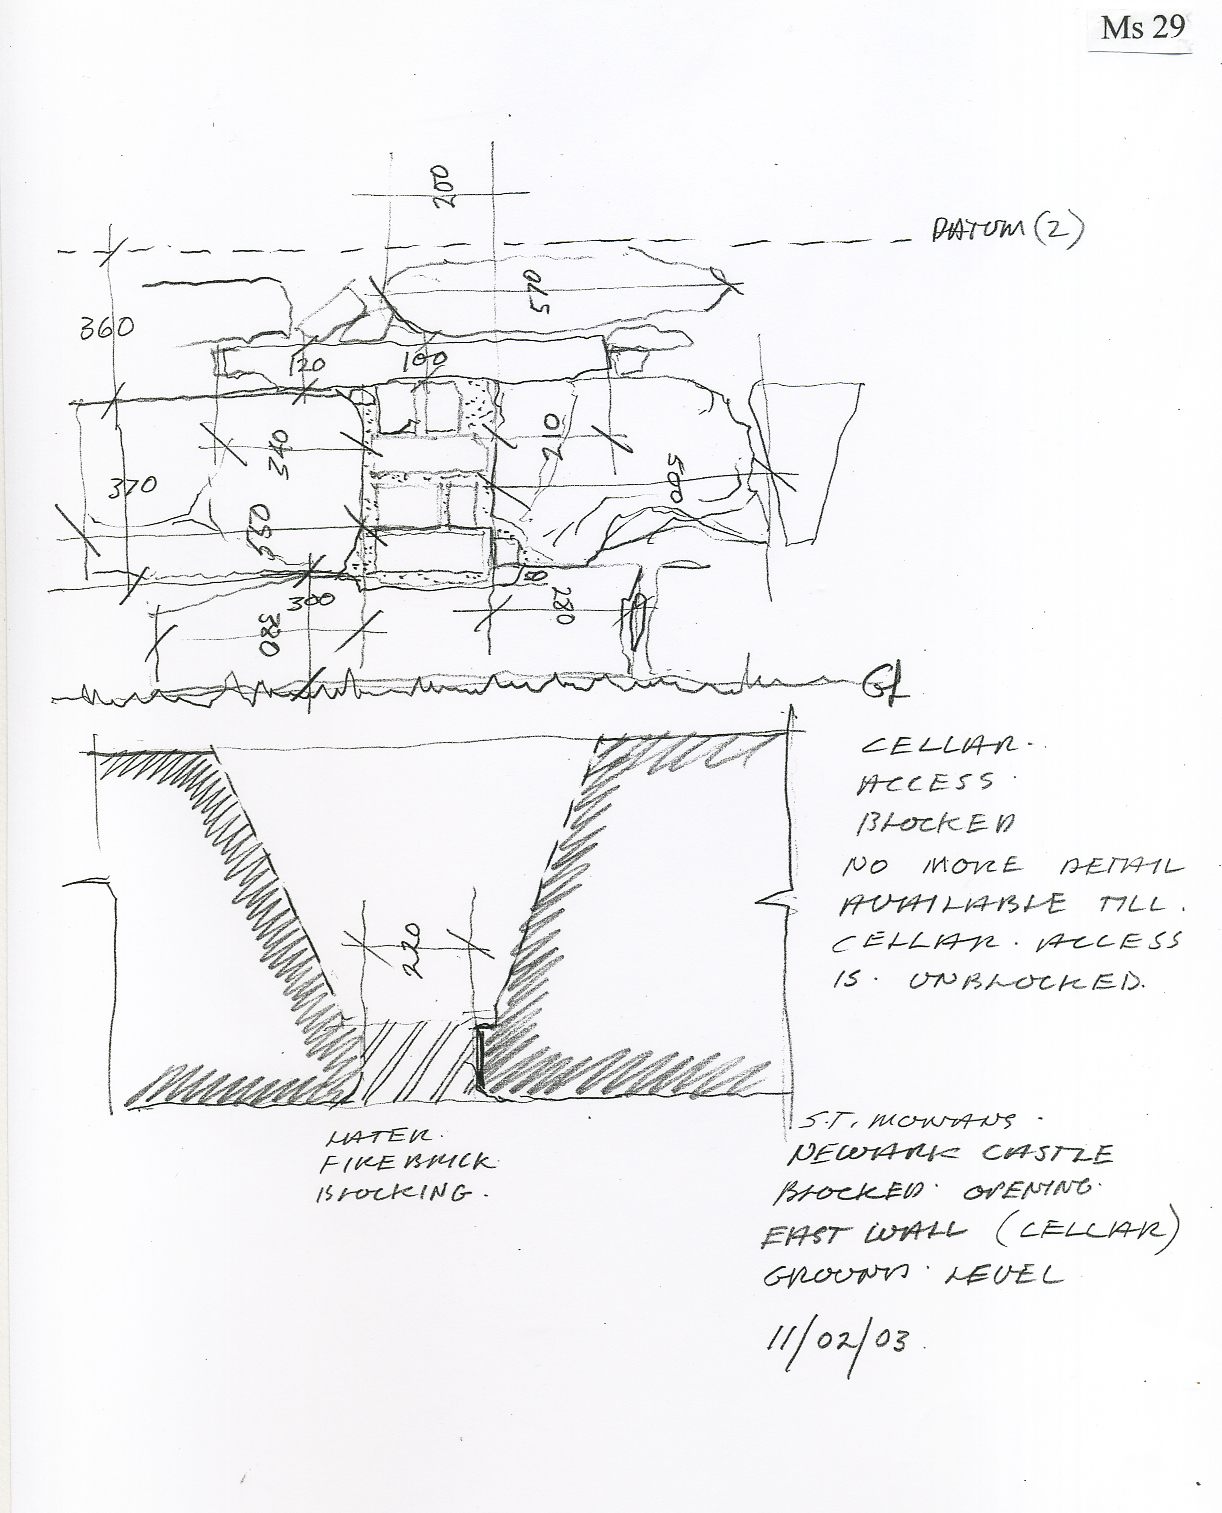 Ms 29
200
DATUM (2)
570
360
120
100
340
210
500
370
550
300
280
380
GL
CELLAR.
ACCESS.
BLOCKED
NO MORE DETAIL
AVAILABLE TILL.
CELLAR. ACCESS
IS. UNBLOCKED.
220
LATER.
FIREBRICK
BLOCKING.
S.T. MONANS.
NEWARK CASTLE
BLOCKED. OPENING.
EAST WALL (CELLAR)
GROUND. LEVEL
11/02/03.